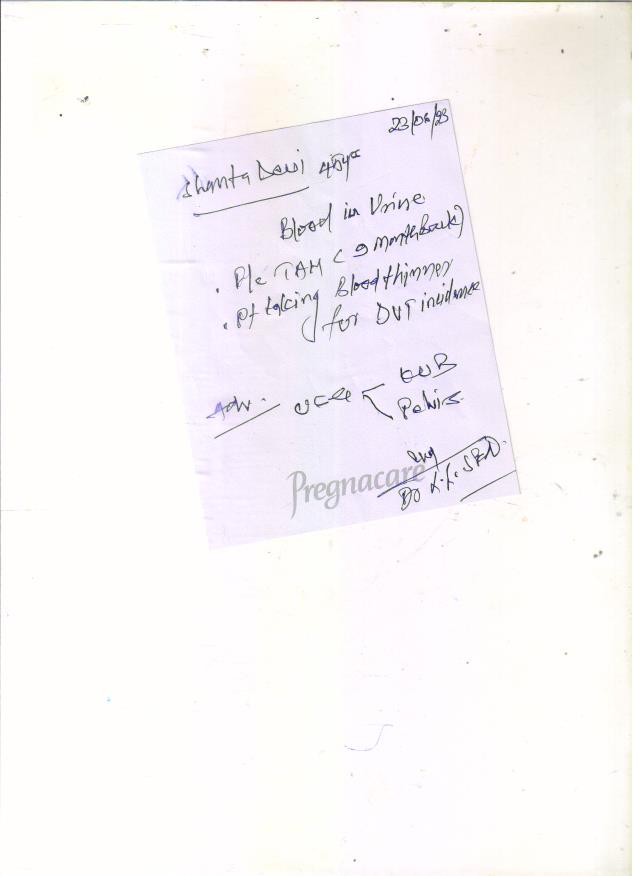 23/06/23
Shanta Devi
Blood in Urine
. P/c TAH (9 month Back)
. Pt taking Blood thinner
for DVT incidence
Adv. KUB
Pelvis
Pregnacare
Do